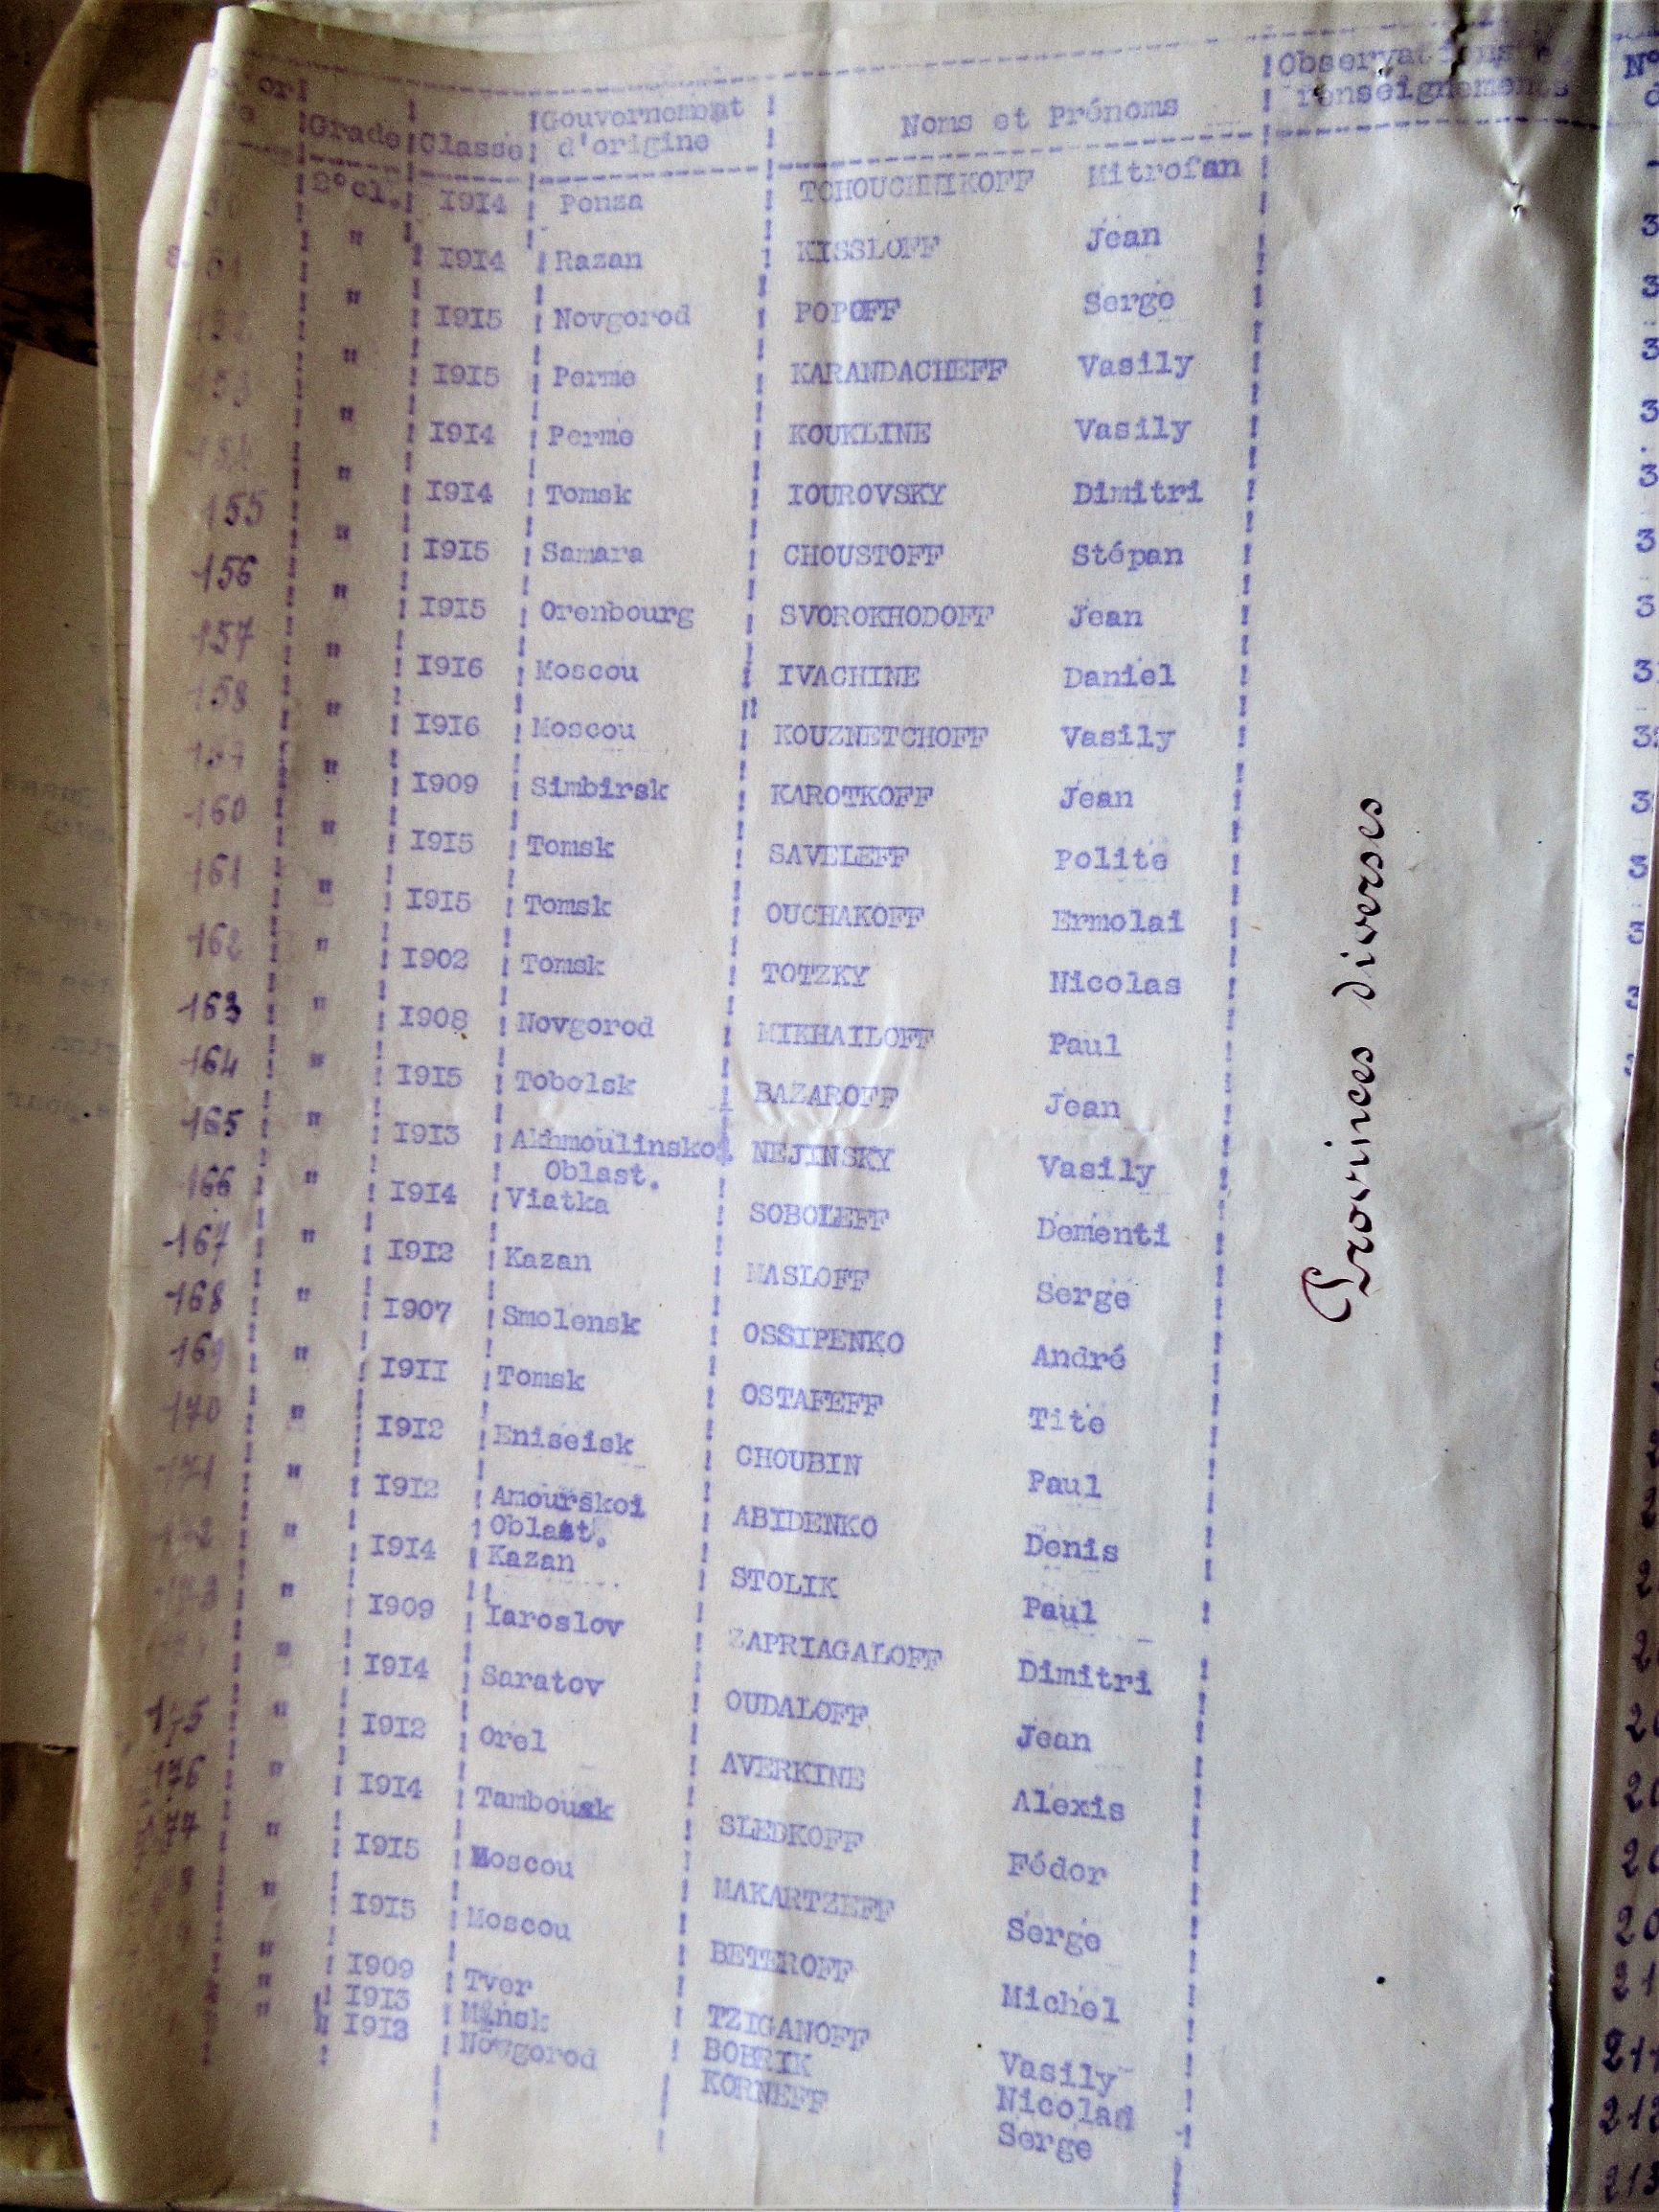 Grade Classe Gouvernement d'origine Noms et Prénoms Observations renseignements
2°cl. I9I4 Penza TCHOUCHNIKOFF Mitrofan
" I9I4 Razan KISSLOFF Jean
" I9I5 Novgorod POPOFF Serge
153 " I9I5 Perme KARANDACHEFF Vasily
154 " I9I4 Perme KOUKLINE Vasily
155 " I9I4 Tomsk IOUROVSKY Dimitri
156 " I9I5 Samara CHOUSTOFF Stépan
157 " I9I5 Orenbourg SVOROKHODOFF Jean
158 " I9I6 Moscou IVACHINE Daniel
159 " I9I6 Moscou KOUZNETCHOFF Vasily
160 " I909 Simbirsk KAROTKOFF Jean
161 " I9I5 Tomsk SAVELEFF Polite
162 " I9I5 Tomsk OUCHAKOFF Ermolai
163 " I902 Tomsk TOTZKY Nicolas
164 " I908 Novgorod MIKHAILOFF Paul
165 " I9I5 Tobolsk BAZAROFF Jean
166 " I9I3 Akhmoulinsko NEJINSKY Vasily
Oblast.
167 " I9I4 Viatka SOBOLEFF Dementi
168 " I9I2 Kazan MASLOFF Serge
169 " I907 Smolensk OSSIPENKO André
170 " I9II Tomsk OSTAFEFF Tite
171 " I9I2 Eniseisk CHOUBIN Paul
172 " I9I2 Amourskoi ABIDENKO Denis
Oblast.
" I9I4 Kazan STOLIK Paul
" I909 Iaroslov ZAPRIAGALOFF Dimitri
175 " I9I4 Saratov OUDALOFF Jean
176 " I9I2 Orel AVERKINE Alexis
177 " I9I4 Tambousk SLEDKOFF Fédor
" I9I5 Moscou MAKARTZEFF Serge
" I9I5 Moscou BETEROFF Michel
" I909 Tver TZIGANOFF Vasily
" I9I3 Minsk BOBRIK Nicolas
" I9I3 Novgorod KORNEFF Serge
Provinces diverses